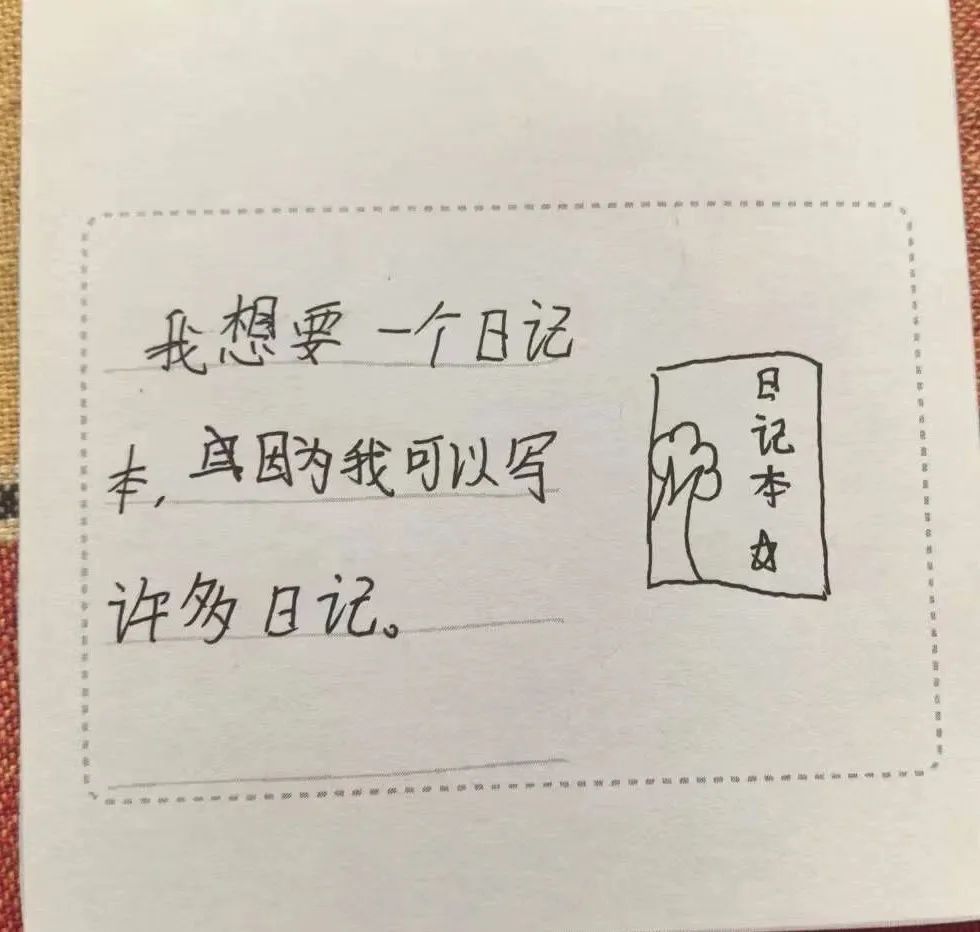 我想要一个日记
本，因为我可以写
许多日记。
日记本